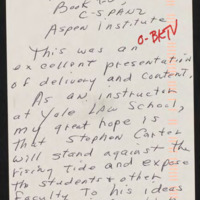 Book TV
C-SPAN2
Aspen Institute
O-BKTV
This was an
excellent presentation
of delivery and content.
As an instructor
at Yale LAW School,
my great hope is
that Stephen Carter
will stand against the
rising tide and expose
the students & other
faculty to his ideas